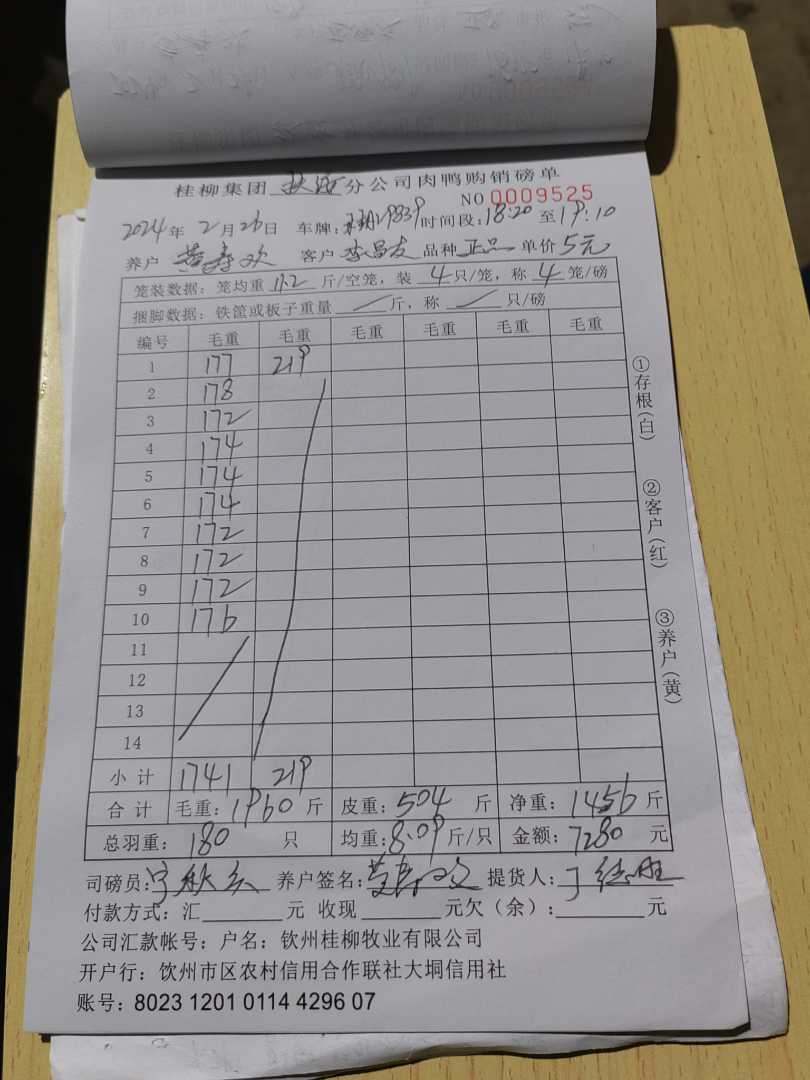 桂柳集团 分公司肉鸭购销磅单
NO 0009525
2024年 2月26日 车牌: 9839 时间段:18:20 至19:10
养户 黄寿欢 客户 李昌友 品种 正品 单价 5元
笼装数据: 笼均重 11.2 斤/空笼, 装 4 只/笼, 称 4 笼/磅
捆脚数据: 铁筐或板子重量 / 斤, 称 / 只/磅
编号 毛重 毛重 毛重 毛重 毛重 毛重
1 177 219
2 178
3 172
4 174
5 174
6 174
7 172
8 172
9 172
10 176
11
12
13
14
小计 1741 219
合计 毛重: 1960 斤 皮重: 504 斤 净重: 1456 斤
总羽重: 180 只 均重: 8.09 斤/只 金额: 7280 元
司磅员: 养户签名: 提货人:
付款方式: 汇 元 收现 元欠(余): 元
公司汇款帐号: 户名: 钦州桂柳牧业有限公司
开户行: 饮州市区农村信用合作联社大垌信用社
账号: 8023 1201 0114 4296 07
①存根(白)
②客户(红)
③养户(黄)